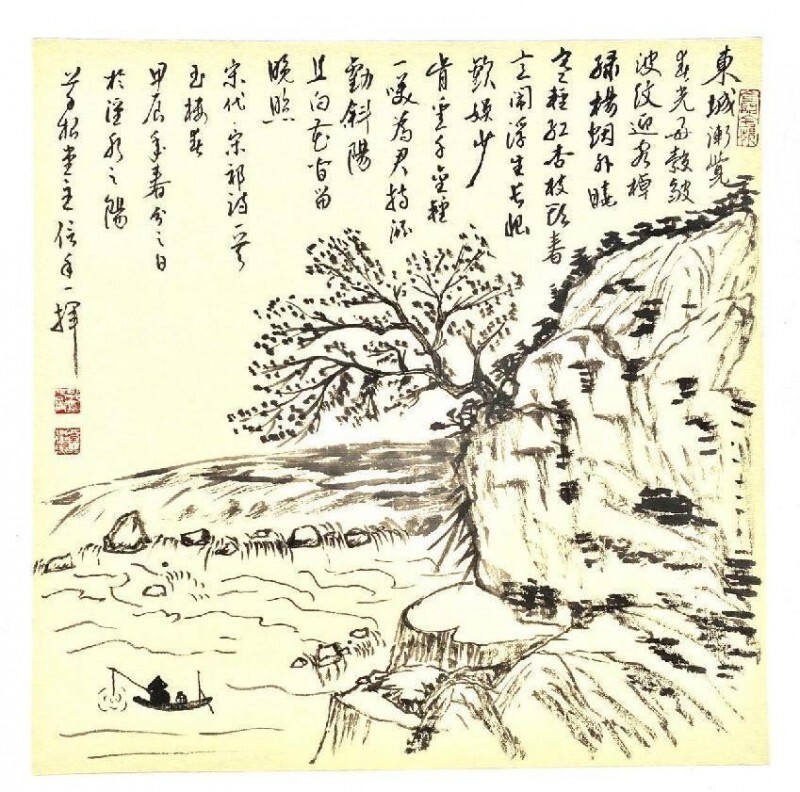 東城漸覺
春光好縠皺
波紋迎客棹
綠楊烟外曉
寒輕红杏枝頭春
意闹浮生長恨
歡娱少
肯愛千金輕
一笑為君持酒
勸斜陽
且向花間留
晚照
宋代·宋祁詩一首
玉楼春
甲辰年春分之日
於水之陽
松堂主信手一揮